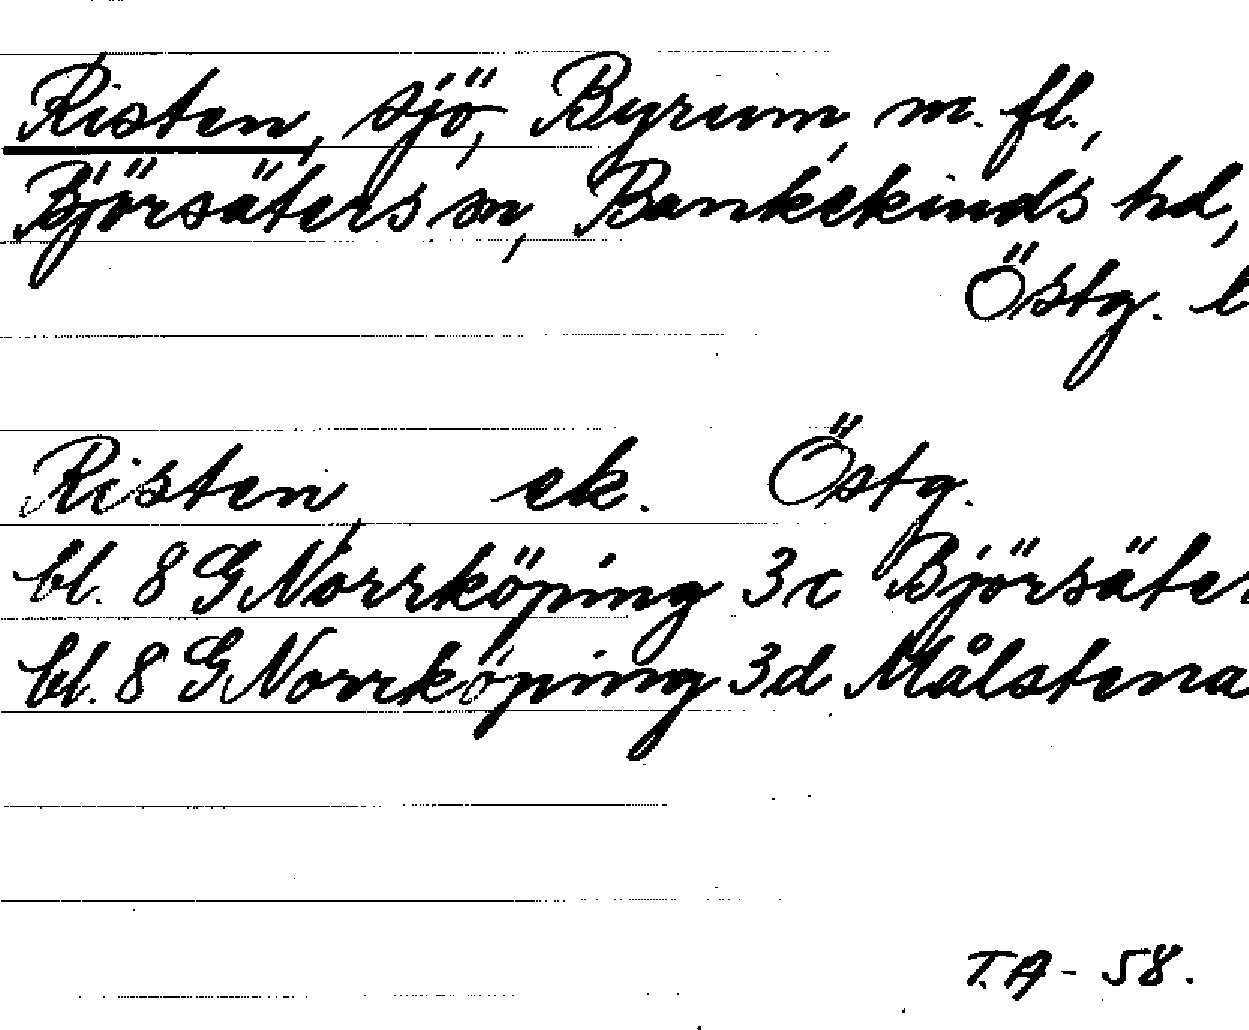 Risten, sjö, Byrum, m. fl.,
Björsäters sn, Bankekinds hd,
Östg. l
Risten, ek. Östg.
bl. 8 G Norrköping 3c Björsäter
bl. 8 G Norrköping 3d Målstena
T.A - 58.